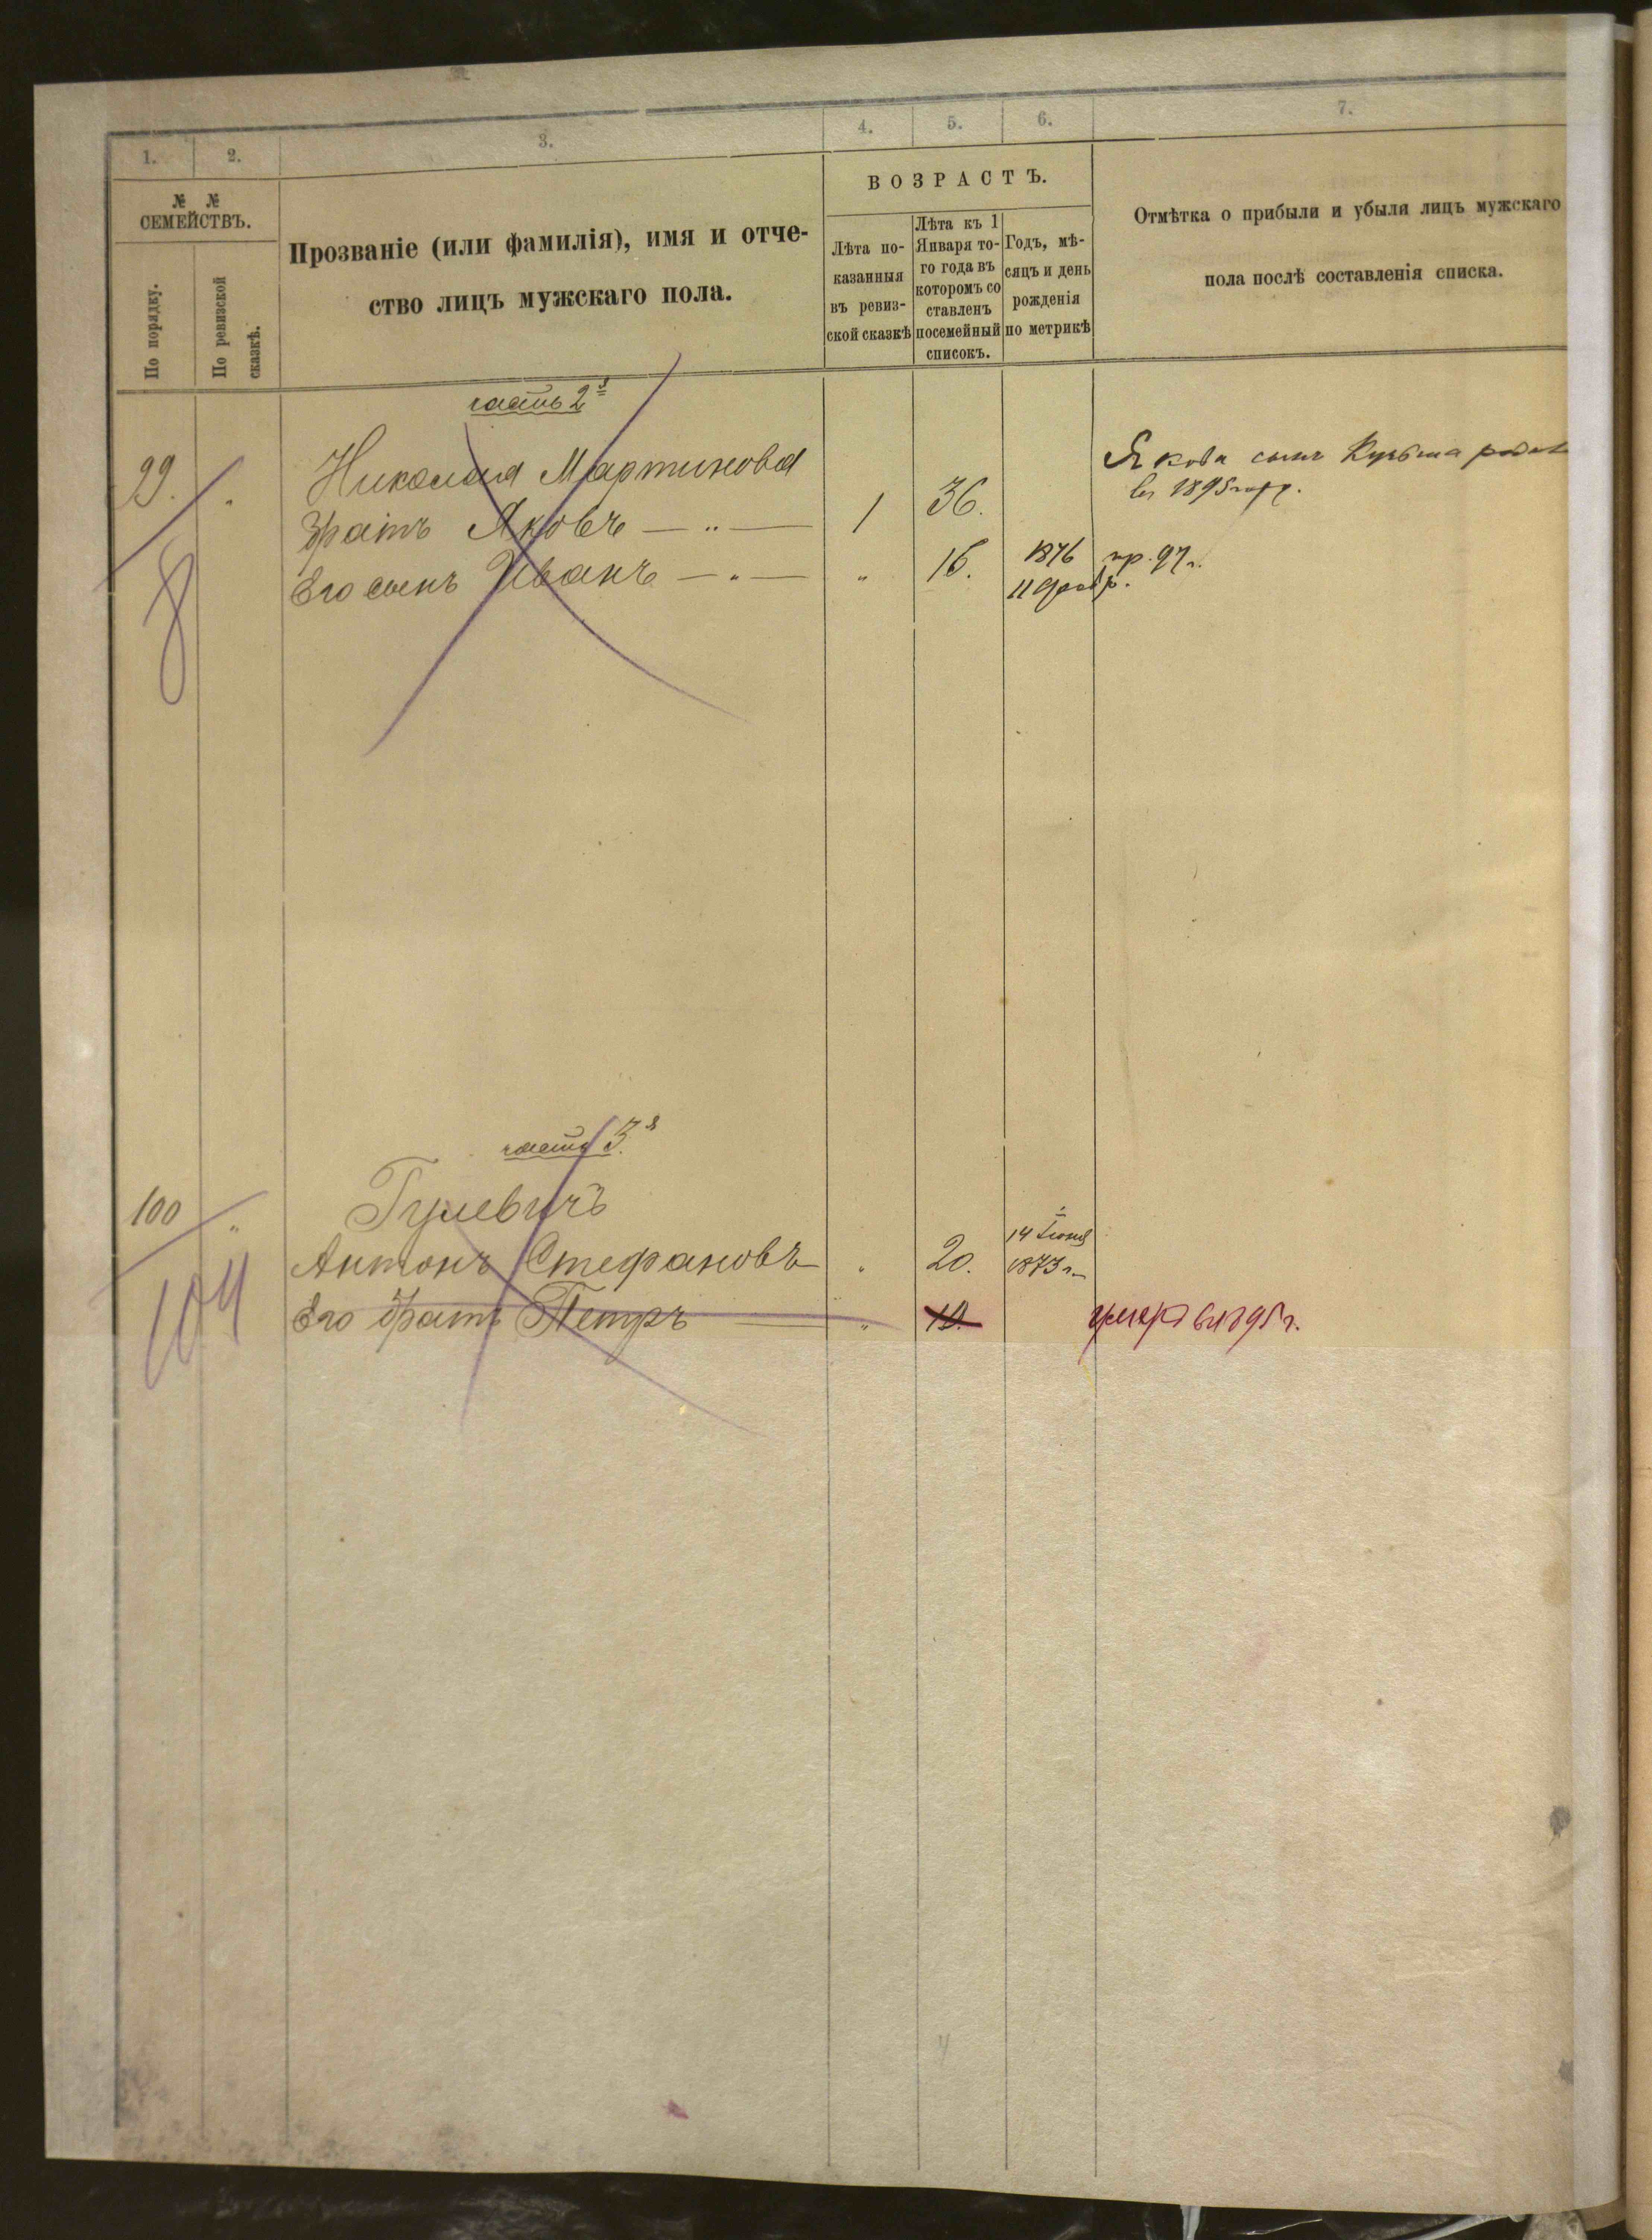 1.
2.
3.
4.
5.
6.
7.
№ №
СЕМЕЙСТВЪ.
По порядку.
По ревизской
сказкѣ.
Прозваніе (или фамилія), имя и отче-
ство лицъ мужскаго пола.
ВОЗРАСТЪ.
Лѣта по-
казанныя
въ ревиз-
ской сказкѣ
Лѣта къ 1
Января то-
го года въ
которомъ со
ставленъ
посемейный
списокъ.
Годъ, мѣ-
сяцъ и день
рожденія
по метрикѣ
Отмѣтка о прибыли и убыли лицъ мужскаго
пола послѣ составленія списка.
часть 2я
99. „ Николая Мартинова
Якова сынъ Кузьма
въ 1895 году.
братъ Яковъ — „ — 1 36.
Его сынъ Иванъ — „ — „ 16. 1876 пр. 97 г.
11 февр.
8
часть 3я
100 „ Гулевичъ
Антонъ Стефановъ „ 20. 14 Іюня
1873 г.
Его братъ Петръ — „ 10. умеръ въ 1895 г.
104